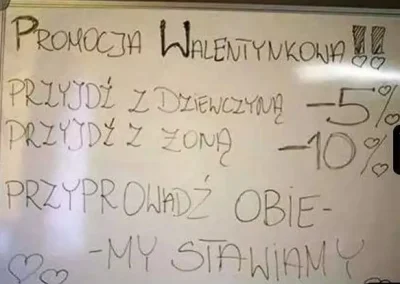 PROMOCJA WALENTYNKOWA!!
PRZYJDŹ Z DZIEWCZYNĄ -5%
PRZYJDŹ Z ŻONĄ -10%
PRZYPROWADŹ OBIE-
-MY STAWIAMY